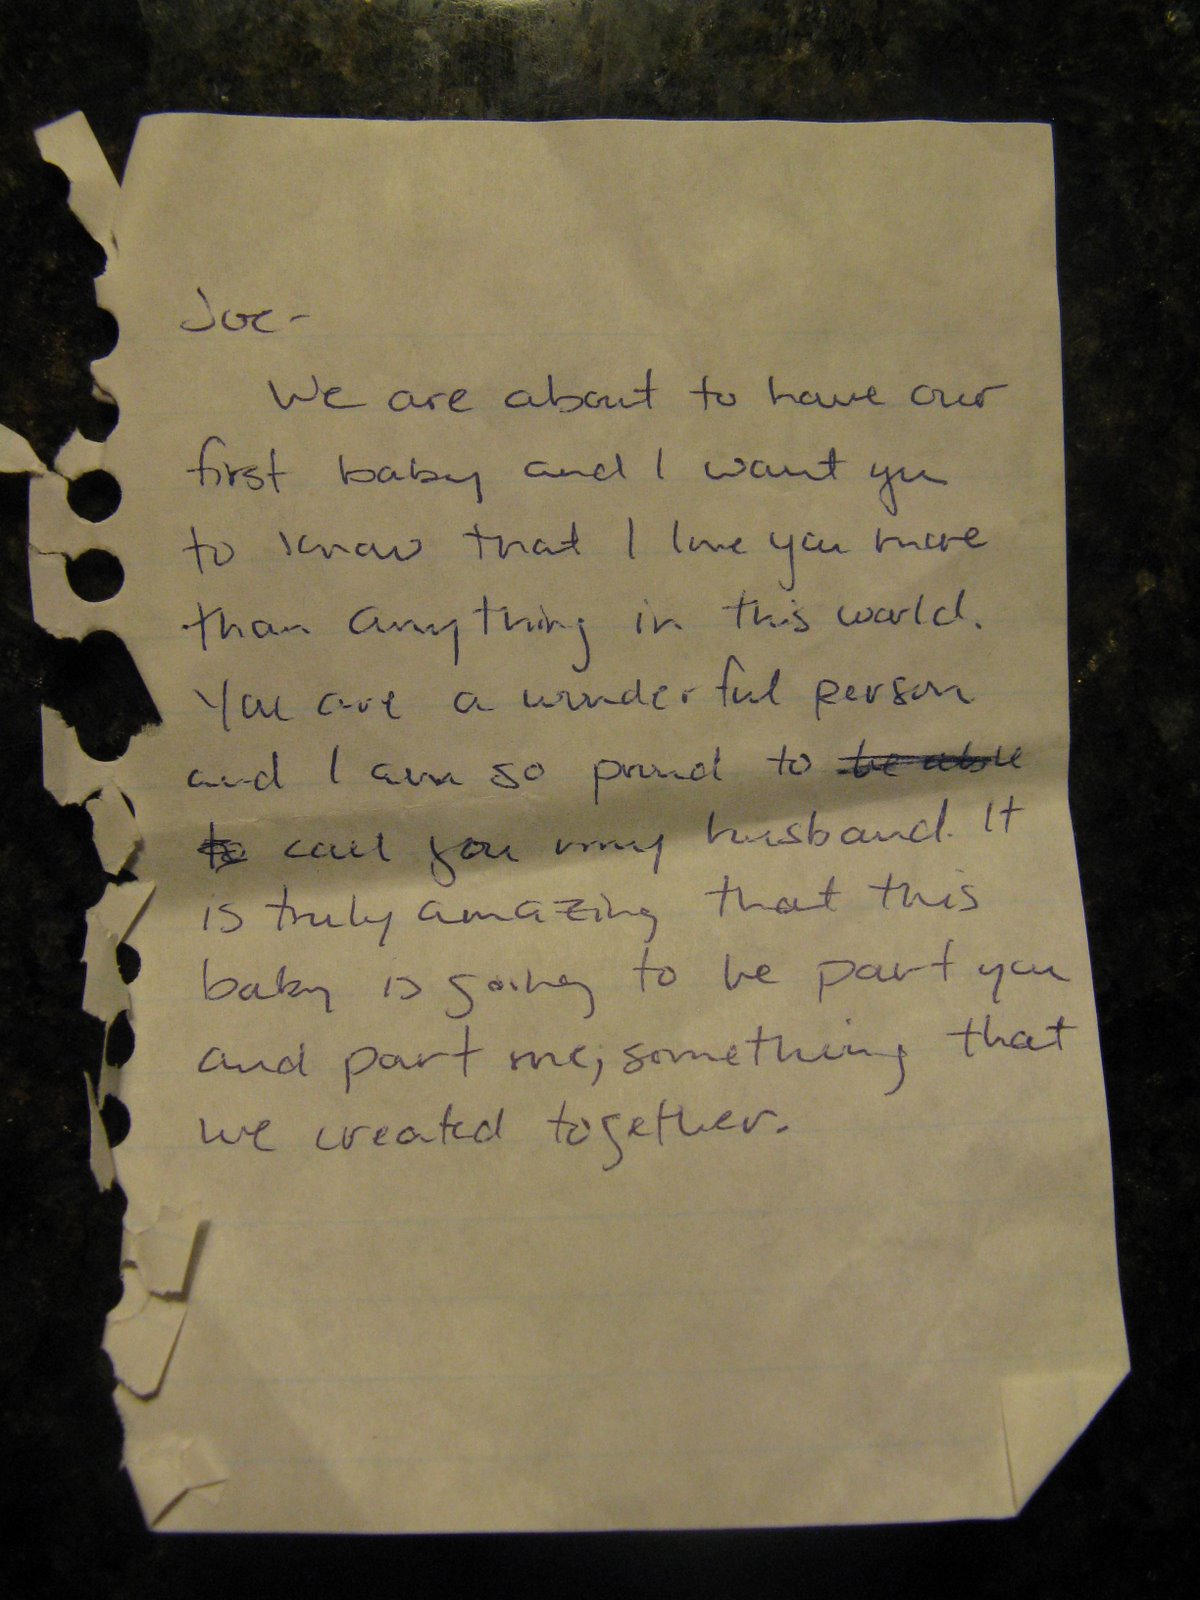 Joe-
We are about to have our
first baby and I want you
to know that I love you more
than anything in this world.
You are a wonderful person
and I am so proud to ~~be able~~
~~to~~ call you my husband. It
is truly amazing that this
baby is going to be part you
and part me, something that
we created together.